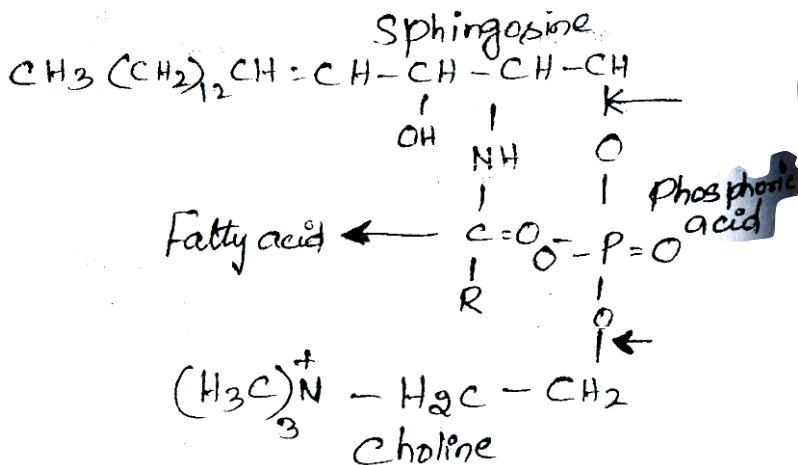 Sphingosine
CH3 (CH2)12 CH = CH - CH - CH - CH
OH
NH
O
Phosphoric acid
Fatty acid ← C=O O⁻ - P = O
R
O
(H3C)3 N⁺ - H2C - CH2
Choline